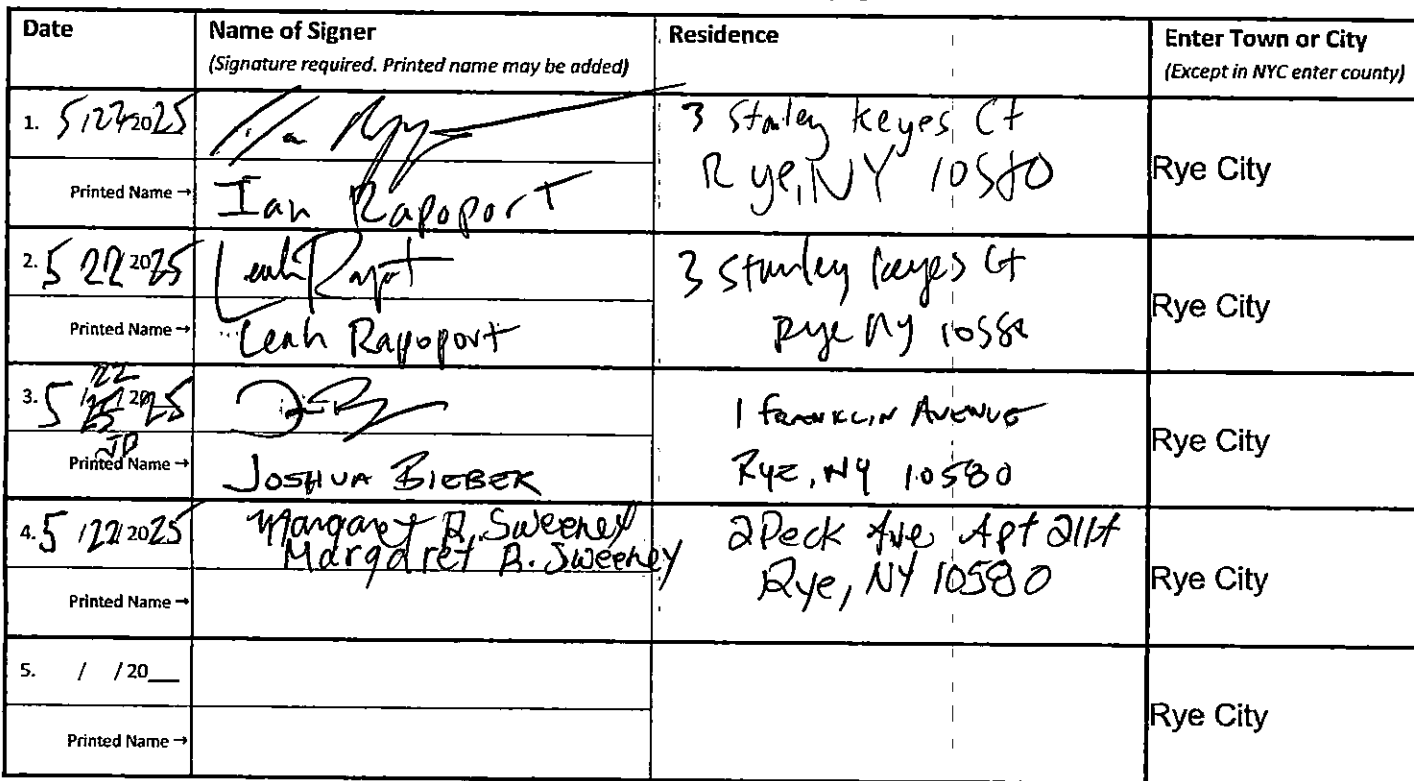 Date Name of Signer Residence Enter Town or City
(Signature required. Printed name may be added) (Except in NYC enter county)
1. 5/22/2025 3 Stanley Keyes Ct
Rye, NY 10580 Rye City
Printed Name → Ian Rapoport
2. 5 22 2025 Leah Rapoport 3 Stanley Keyes Ct
Rye NY 10580 Rye City
Printed Name → Leah Rapoport
3. 5 22 2025 1 FRANKLIN AVENUE
Rye, NY 10580 Rye City
Printed Name → JOSHUA BIEBER
4. 5/22/2025 Margaret R. Sweeney 2 Peck Ave Apt
Margaret R. Sweeney Rye, NY 10580 Rye City
Printed Name →
5. / /20__ Rye City
Printed Name →